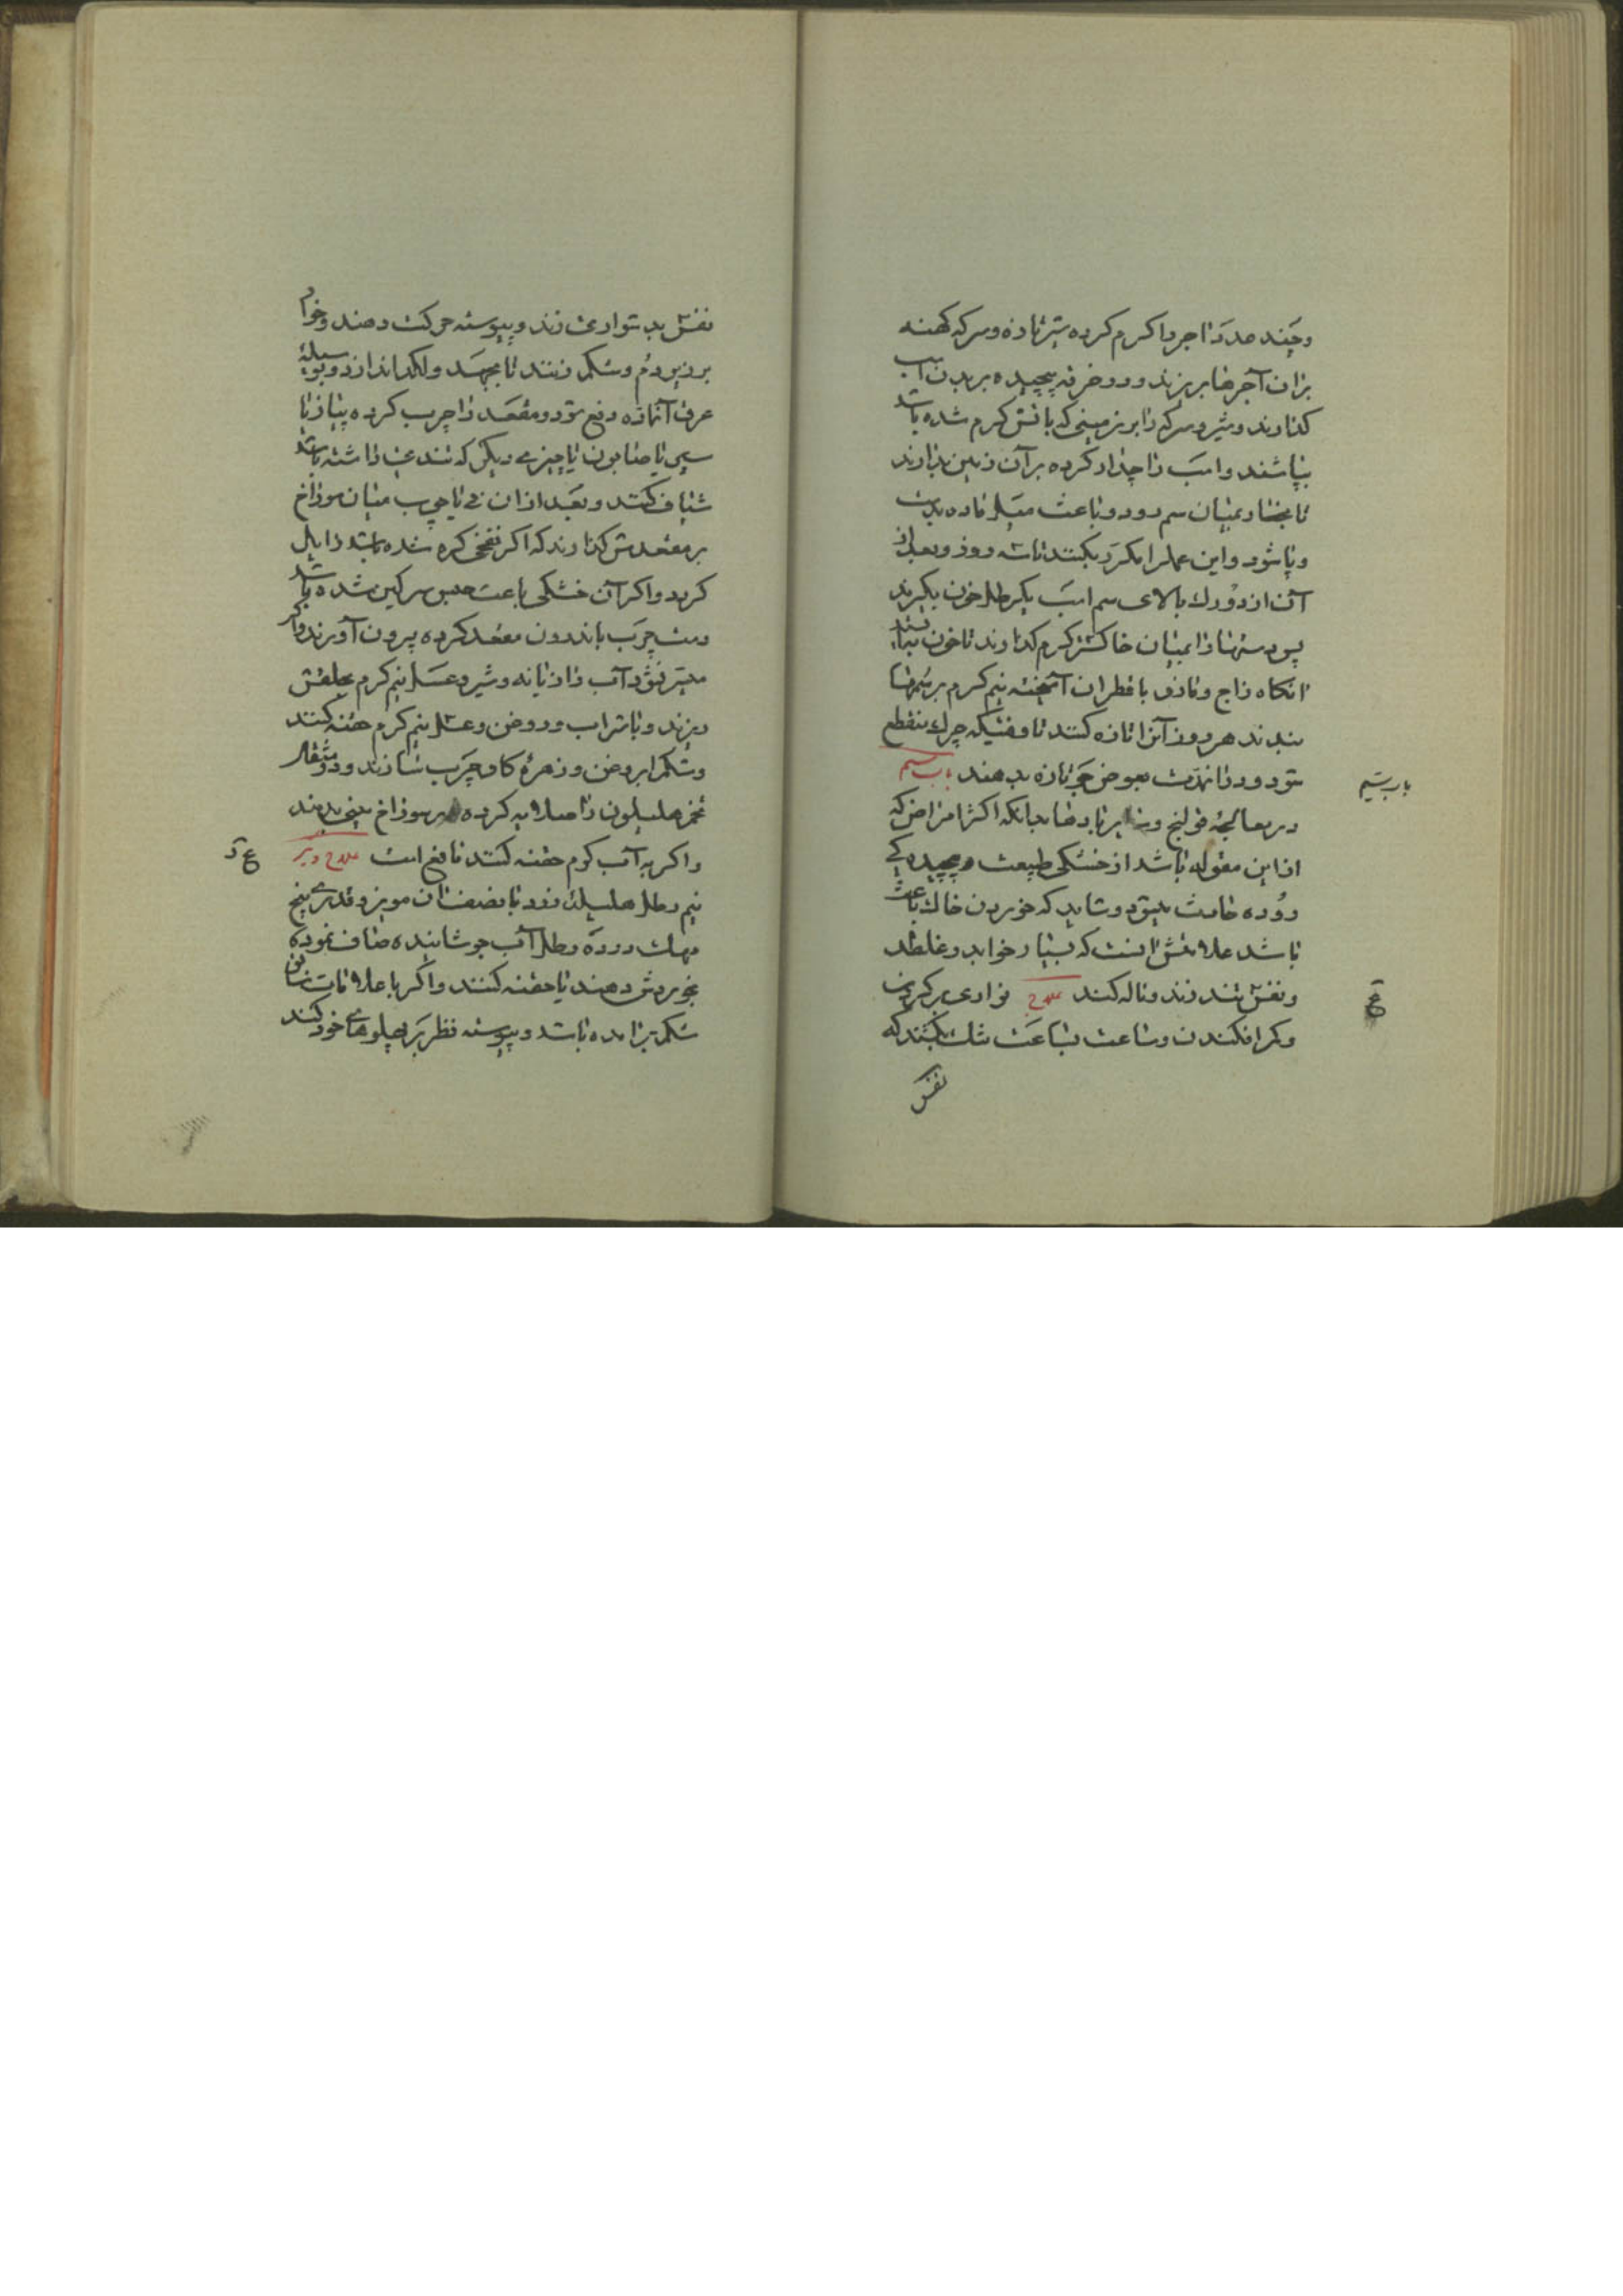 وچند عدد اجر را کرم کرده شیر تازه و سرکه کهنه
بران آجرها بریزند و در خرقه پیچیده بر بدن اسب
کذارند و شیر و سرکه را بر زمینی که باتش کرم شده باشد
بپاشند و اسب را جدار کرده بر آن زمین بدارند
تا بخار بمیان سم رود و باعث میل ماده بدست
و پا شود و این عمل را مکرر بکنند تا سه روز و بعد از
آن از دو رك بالای سم اسب یکرطل خون بکیرند
پس دستها را بمیان خاکستر کرم کذارند تا خون
انکاه زاج و مازو با قطران آمیخته نیم کرم بر سمها
بندند هر روز آنرا تازه کنند تا وقتیکه چرك منقطع
شود و در انمدت بعوض جو تازه بدهند باب سیم
باب سیم
در معالجهٔ قولنج و سایر بادها بدانکه اکثر امراض که
از این مقوله باشد از خشکی طبیعت و پیچیدکی
روده حادث میشود و شاید که خوردن خاك باعث
باشد علامتش انست که بسیار خوابد و غلطد
و نفس تند زند و ناله کند علاج سواری بر کردن
ع
و کرم افکندن و ساعت بساعت تنك بکشند که
نفس
نفس بدشواری زند و پیوسته حرکت دهند و
بر زیر دم و شکم زنند تا بجهد و لکد اندازد و بوسیلهٔ
عرق آنمازه دفع شود و مقعد را چرب کرده پیاز یا
سیر یا صابون یا چیزی دیکر که تندی داشته باشد
شیاف کنند و بعد از ان نی یا چوب میان سوراخ
بر مقعدش کذارند که اکر نفخی کرده شده باشد زایل
کردد و اکر آن خشکی باعث حبس سرکین شده باشد
دست چرب باندرون مقعد کرده بیرون آورند و اکر
میسر نشود آب رازیانه و شیر و عسل نیم کرم بحلقش
ریزند و با شراب و روغن و عسل نیم کرم حقنه کنند
و شکم را بروغن و زهرهٔ کاو چرب سازند و دو مثقال
تخم هلیلون را صلایه کرده بر سوراخ بینی بدمند
و اکر به آب کرم حقنه کنند نافع است علاج دیکر
ع د
نیم رطل هلیله زرد با نصف ان مویز و قدری بیخ
مهك در ده رطل آب جوشانیده صاف نموده
بخوردش دهند یا حقنه کنند و اکر با علامات سابق
شکم برامده باشد و پیوسته نظر بر پهلوهای خود کند